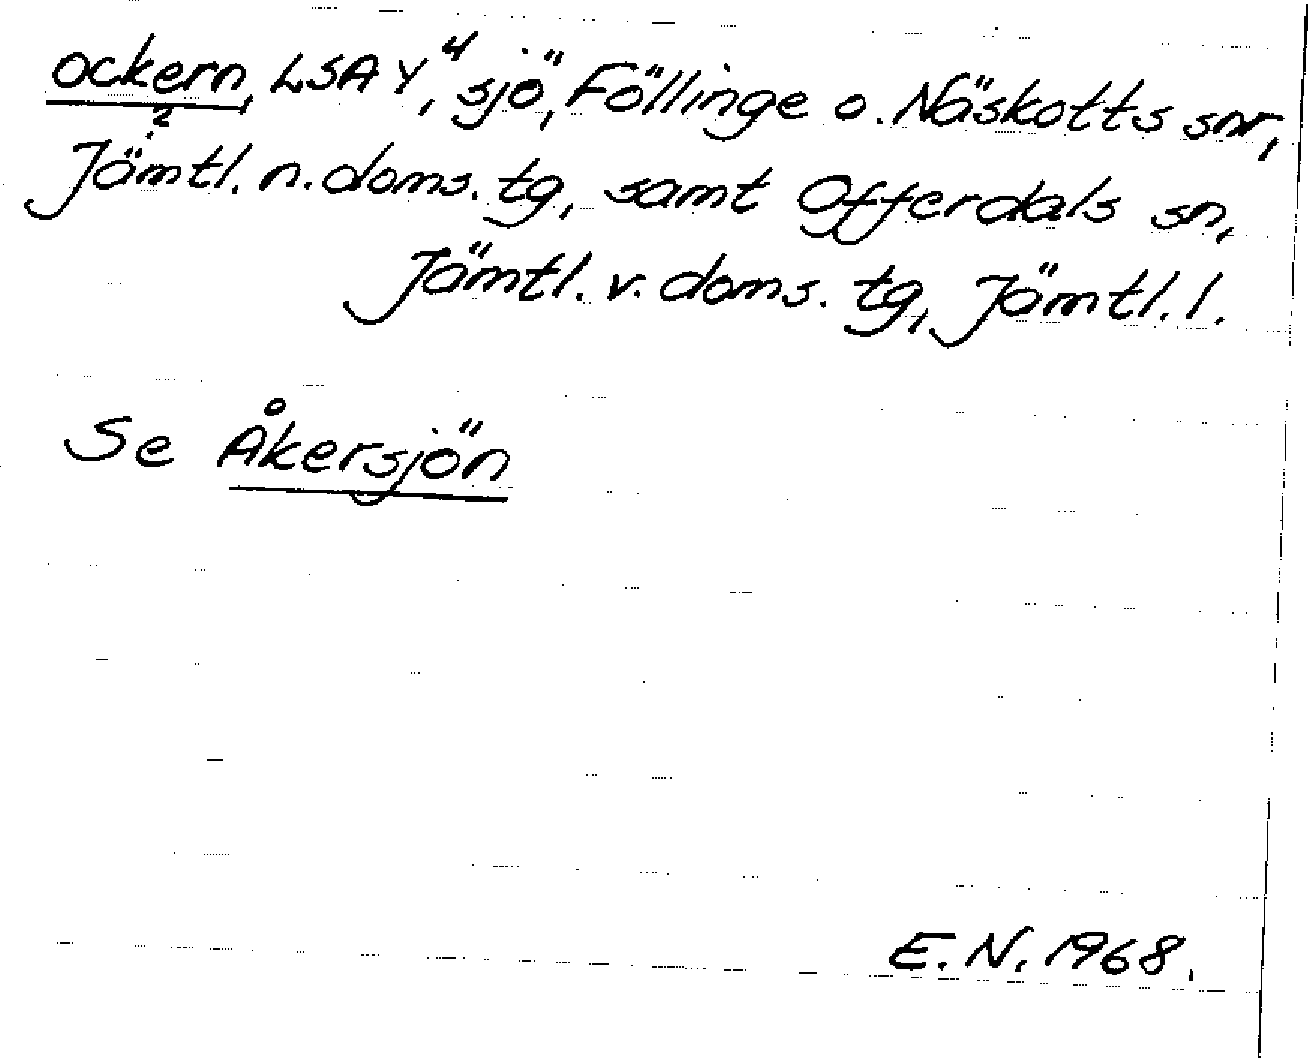 ockern, LSA Y⁴, sjö, Föllinge o. Näskotts snr,
Jämtl. n. doms. tg, samt Offerdals sn,
Jämtl. v. doms. tg, Jämtl. l.
Se Åkersjön
E. N. 1968.